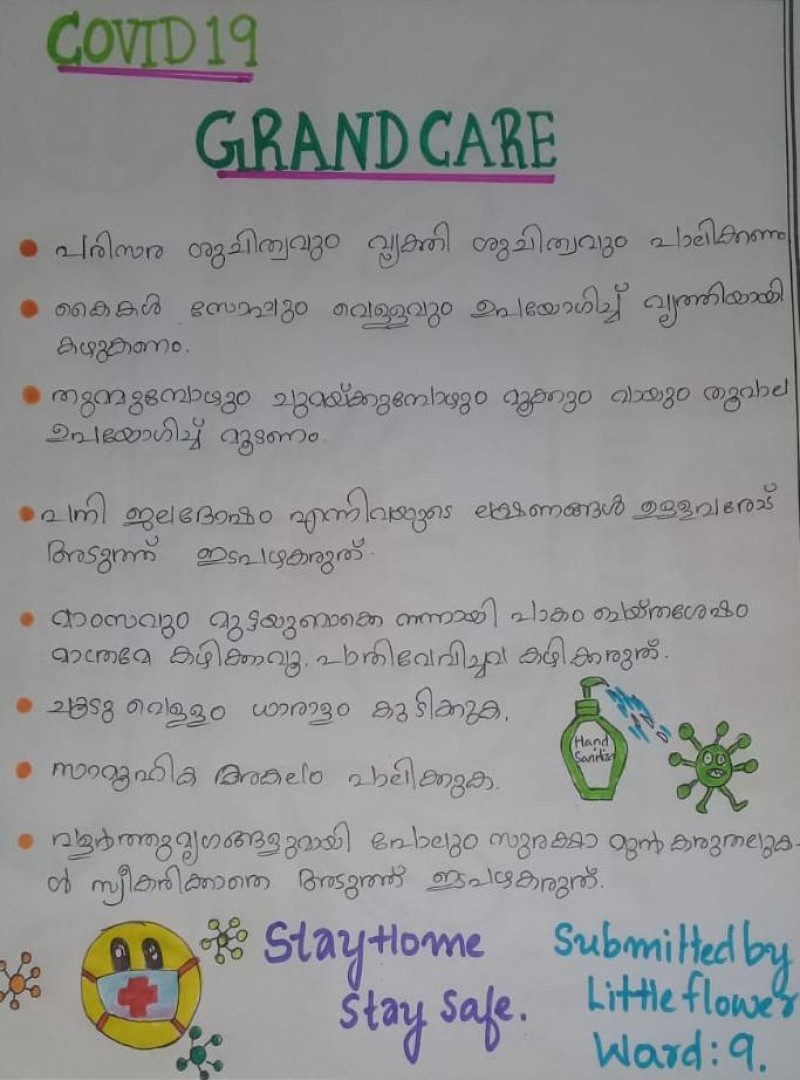 COVID 19
GRAND CARE
പരിസര ശുചിത്വവും വ്യക്തി ശുചിത്വവും പാലിക്കണം
കൈകൾ സോപ്പും വെള്ളവും ഉപയോഗിച്ച് വൃത്തിയായി
കഴുകണം.
തുമ്മുമ്പോഴും ചുമയ്ക്കുമ്പോഴും മൂക്കും വായും തൂവാല
ഉപയോഗിച്ച് മൂടണം.
പനി ജലദോഷം എന്നിവയുടെ ലക്ഷണങ്ങൾ ഉള്ളവരോട്
അടുത്ത് ഇടപഴകരുത്.
മാംസവും മുട്ടയുമൊക്കെ നന്നായി പാകം ചെയ്തശേഷം
മാത്രമേ കഴിക്കാവൂ. പാതിവേവിച്ചവ കഴിക്കരുത്.
ചൂടു വെള്ളം ധാരാളം കുടിക്കുക.
Hand
Sanitizer
സാമൂഹിക അകലം പാലിക്കുക.
വളർത്തുമൃഗങ്ങളുമായി പോലും സുരക്ഷാ മുൻ കരുതലുക-
ൾ സ്വീകരിക്കാതെ അടുത്ത് ഇടപഴകരുത്.
Stay Home
Stay Safe.
Submitted by
Little flower
Ward: 9.